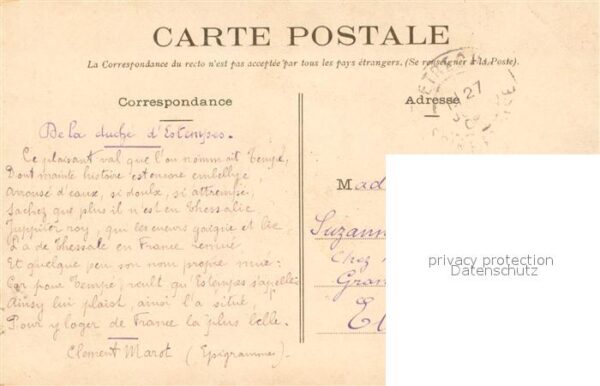 CARTE POSTALE
La Correspondance du recto n'est pas acceptée par tous les pays étrangers. (Se renseigner à la Poste).
Correspondance
Adresse
27
De la duché d'Estenpes.
Ce plaisant val que l'on nommait Tempé,
Dont mainte histoire est encore embellye
Arrousé d'eaux, si doulx, si attrempé
Sachez que plus il n'est en Thessalie
Juppiter roy, qui les cueurs gaigne et lie
L'a de Thessale en France remué
Et quelque peu son nom propre mué:
Car pour Tempé, veult qu'Estempes s'apelle
Ainsy lui plaist, ainsi l'a situé,
Pour y loger de France la plus belle.
Clement Marot (Epigrammes).
Mad
Suzann
Chez
Gran
privacy protection
Datenschutz